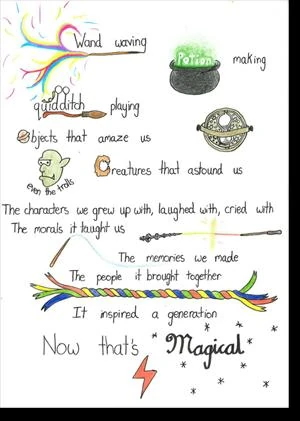 Wand waving
Potion making
quidditch playing
Objects that amaze us
even the trolls
Creatures that astound us
The characters we grew up with, laughed with, cried with
The morals it taught us
The memories we made
The people it brought together
It inspired a generation
Now that's Magical